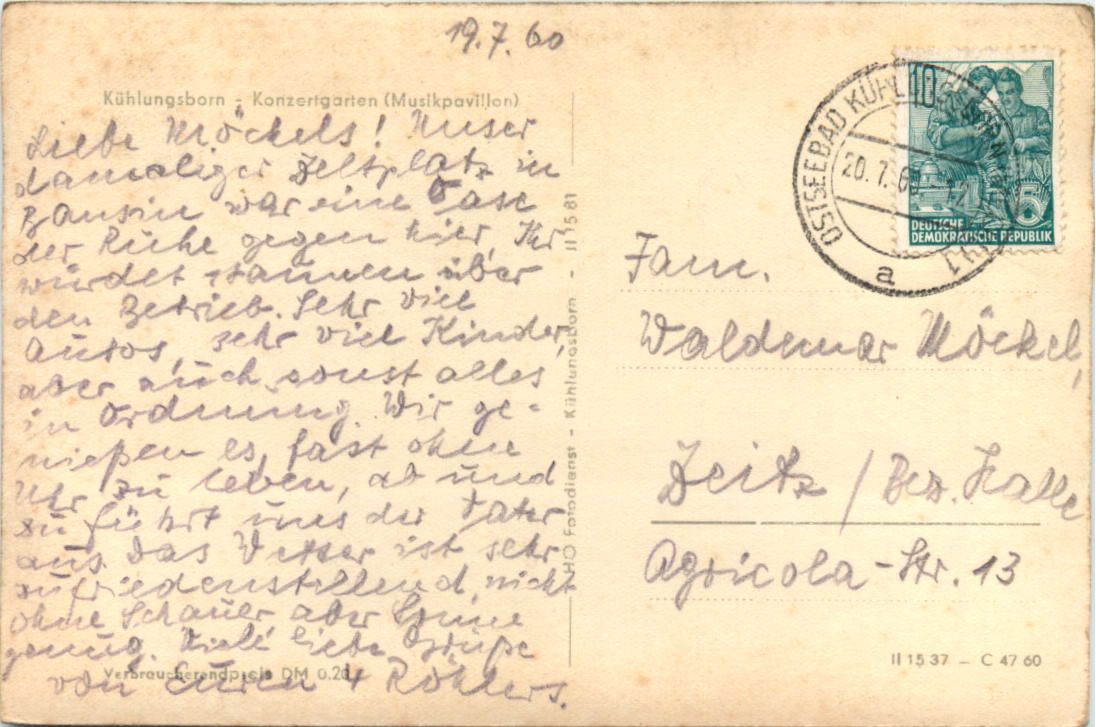 19.7.60
Kühlungsborn - Konzertgarten (Musikpavillon)
Liebe Möckels! Unser
damaliger Zeltplatz in
Bansin war eine Oase
der Ruhe gegen hier, Ihr
würdet staunen über
den Betrieb. Sehr viel
Autos, sehr viel Kinder,
aber auch sonst alles
in Ordnung. Wir ge-
nießen es, fast ohne
Uhr zu leben, ab und
zu führt uns der Vater
aus. Das Wetter ist sehr
zufriedenstellend, nicht
ohne Schauer aber Sonne
genug. Viele liebe Grüße
von Euren 4 Röhlers.
Verbraucherendpreis DM 0,20
HO Fotodienst - Kühlungsborn - II 15 81
OSTSEEBAD KÜHLUNGSBORN
20.7.60
a
10
5
DEUTSCHE
DEMOKRATISCHE REPUBLIK
Fam.
Waldemar Möckel,
Zeitz / Bez. Halle
Agricola-Str. 13
II 15 37 – C 47 60